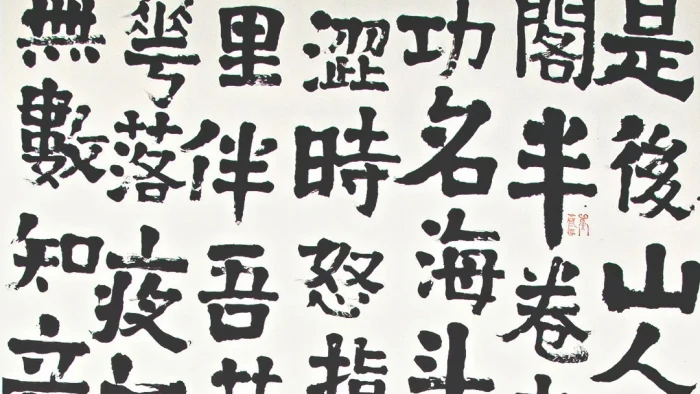 是後山人
閣半卷
功名海斗
澀時怒指
里伴吾
落
無數知